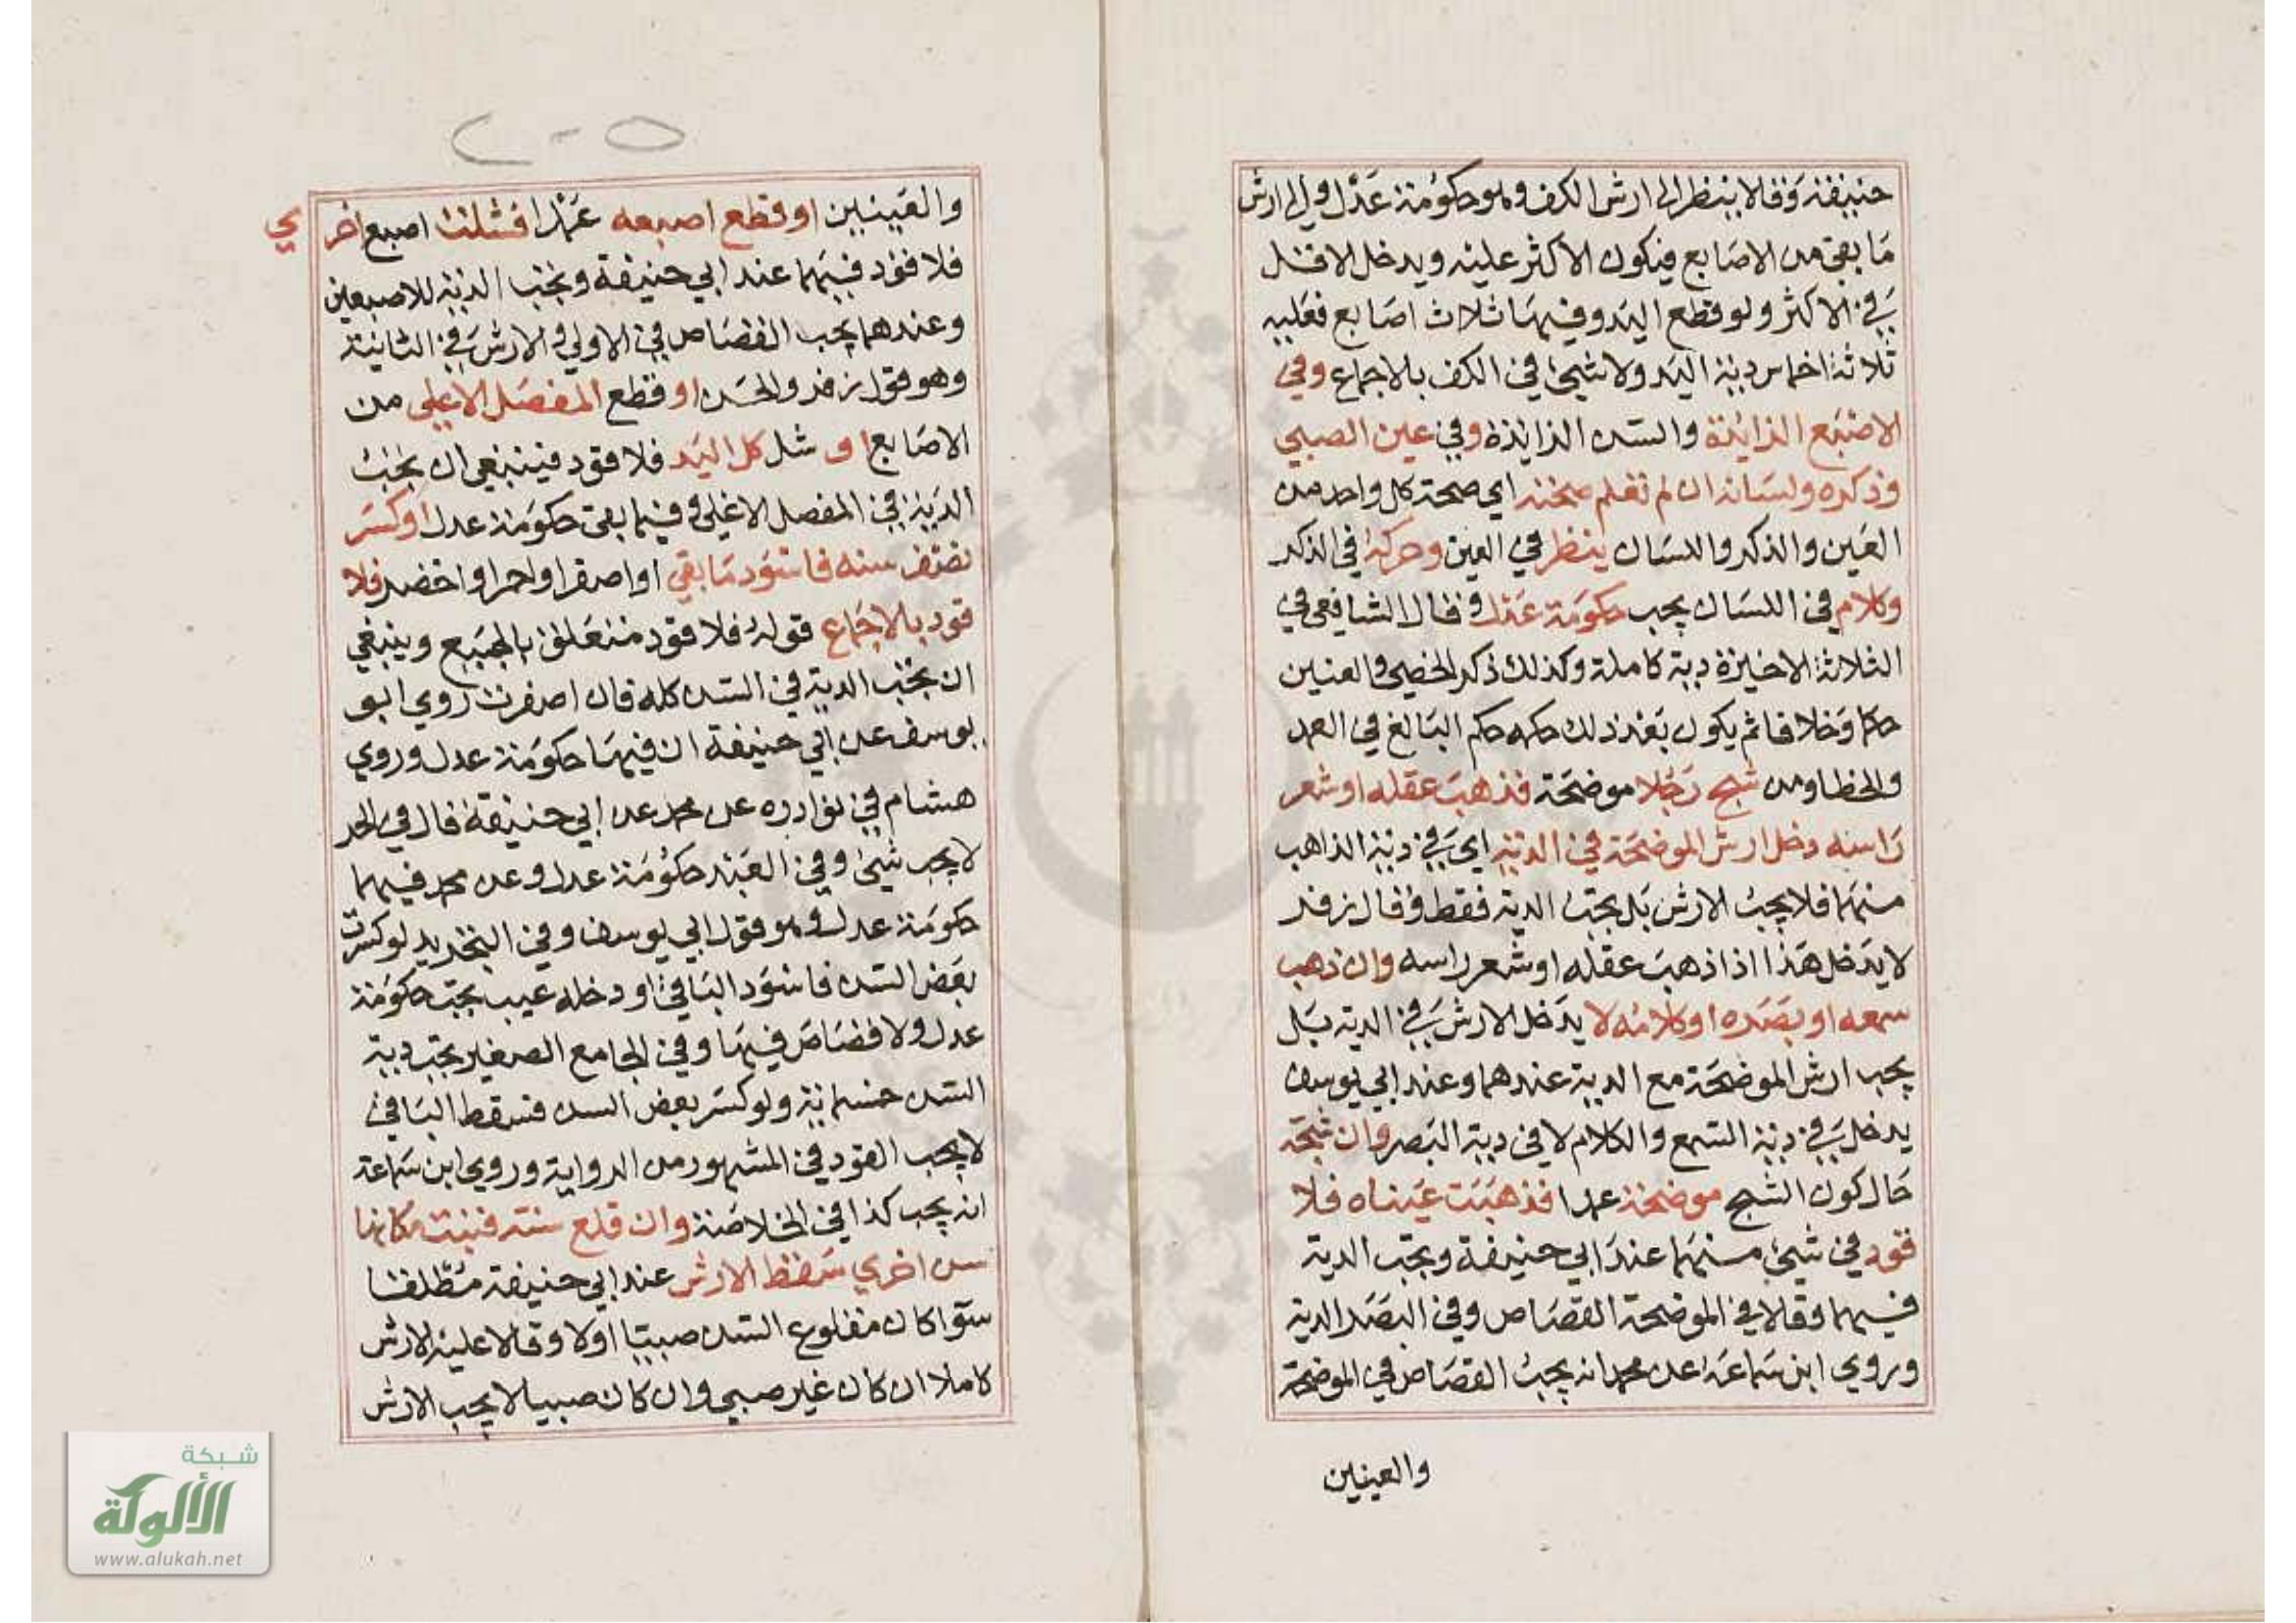 حنيفة وقالا ينظر الى ارش الكف وهو حكومة عدل والى ارش
ما بقي من الاصابع فيكون الاكثر عليه ويدخل الاقل
في الاكثر ولو قطع اليد وفيها ثلاث اصابع فعليه
ثلاثة اخماس دية اليد ولا شيئ في الكف بالاجماع وفي
الاصبع الزايدة والسن الزايدة وفي عين الصبي
وذكره ولسانه ان لم تعلم صحته اي صحة كل واحد من
العين والذكر واللسان ينظر في العين وحركة في الذكر
وكلام في اللسان يجب حكومة عدل وقال الشافعي في
الثلاثة الاخيرة دية كاملة وكذلك ذكر الخصي والعنين
حكما وخلافا ثم يكون بعد ذلك حكمه حكم البالغ في العمد
والخطا ومن شج رجلا موضحة فذهب عقله او شعر
راسه دخل ارش الموضحة في الدية اي في دية الذاهب
منهما فلا يجب الارش بل يجب الدية فقط وقال زفر
لا يدخل هذا اذا ذهب عقله او شعر راسه وان ذهب
سمعه او بصره او كلامه لا يدخل الارش في الدية بل
يجب ارش الموضحة مع الدية عندهما وعند ابي يوسف
يدخل في دية السمع والكلام لا في دية البصر وان شجه
حال كون الشج موضحة عمدا فذهبت عيناه فلا
قود في شيئ منهما عند ابي حنيفة ويجب الدية
فيهما وقالا في الموضحة القصاص وفي البصر الدية
وروي ابن سماعة عن محمد انه يجب القصاص في الموضحة
والعينين
والعينين او قطع اصبعه عمدا فشلت اصبع اخر ي
فلا قود فيهما عند ابي حنيفة ويجب الدية للاصبعين
وعندهما يجب القصاص في الاولي والارش في الثانية
وهو قول زفر والحسن او قطع المفصل الاعلي من
الاصابع او شل كل اليد فلا قود فينبغي ان يجب
الدية في المفصل الاعلي وفيما بقي حكومة عدل او كسر
نصف سنه فاسود ما بقي او اصفر او احمر او اخضر فلا
قود بالاجماع قوله فلا قود متعلق بالجميع وينبغي
ان يجب الدية في السن كله فان اصفرت روي ابو
يوسف عن ابي حنيفة ان فيها حكومة عدل وروي
هشام في نوادره عن محمد عن ابي حنيفة قال في الحر
لا يجب شيئ وفي العبد حكومة عدل وعن محمد فيهما
حكومة عدل وهو قول ابي يوسف وفي التجريد لو كسرت
بعض السن فاسود الباقي او دخله عيب يجب حكومة
عدل ولا قصاص فيها وفي الجامع الصغير يجب دية
السن خسمانية ولو كسر بعض السن فسقط الباقي
لا يجب القود في المشهور من الرواية وروي ابن سماعة
انه يجب كذا في الخلاصة وان قلع سنه فنبت مكانها
سن اخري سقط الارش عند ابي حنيفة مطلقا
سوا كان مقلوع السن صبيا او لا وقالا عليه الارش
كاملا ان كان غير صبي وان كان صبيا لا يجب الارش
شبكة
الألوكة
www.alukah.net